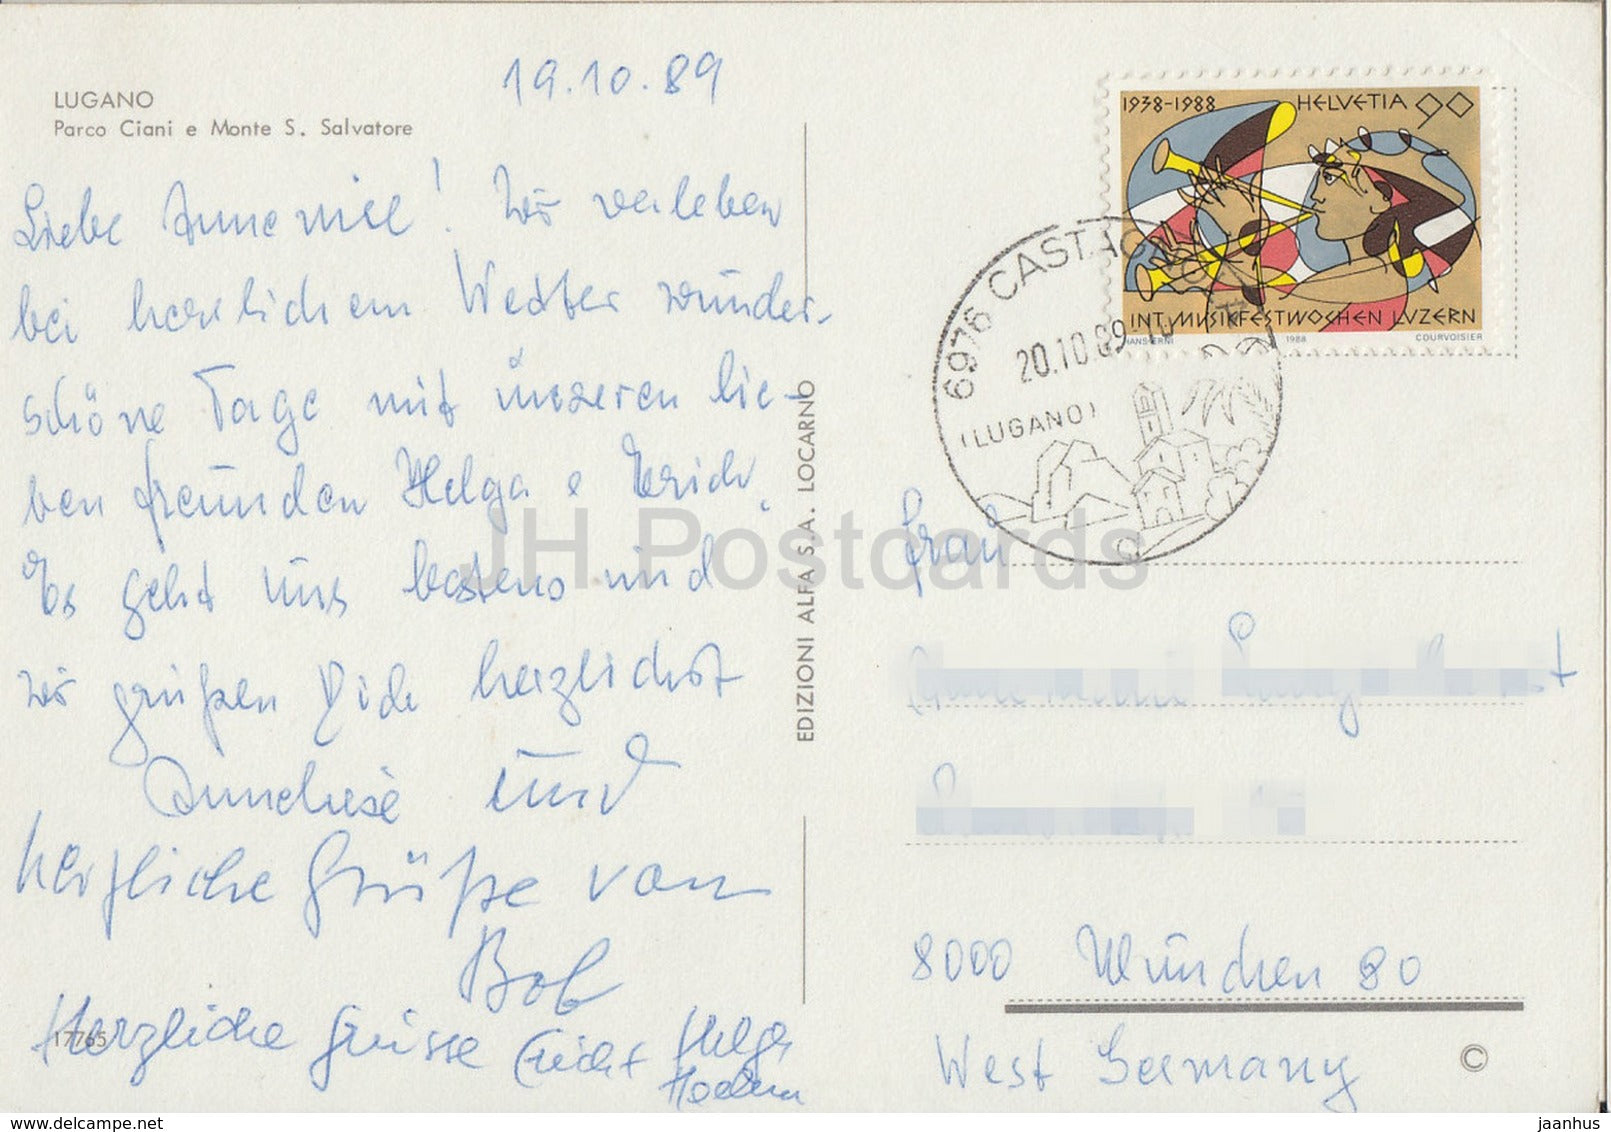 LUGANO
Parco Ciani e Monte S. Salvatore
19.10.89
Liebe Annemie! Wir verleben
bei herrlichem Wetter wunder-
schöne Tage mit unseren lie-
ben Freunden Helga & Erich.
Es geht uns bestens und
wir grüßen Dich herzlichst
Anneliese und
Herzliche Grüße von
Bob
Herzliche Grüsse Erich + Helga
17765
EDIZIONI ALFA S.A. LOCARNO
1938-1988 HELVETIA 90
INT. MUSIKFESTWOCHEN LUZERN
HANS ERNI 1988 COURVOISIER
6976 CASTAG
20.10.89-10
(LUGANO)
Frau
8000 München 80
West Germany
©
JH Postcards
jaanhus